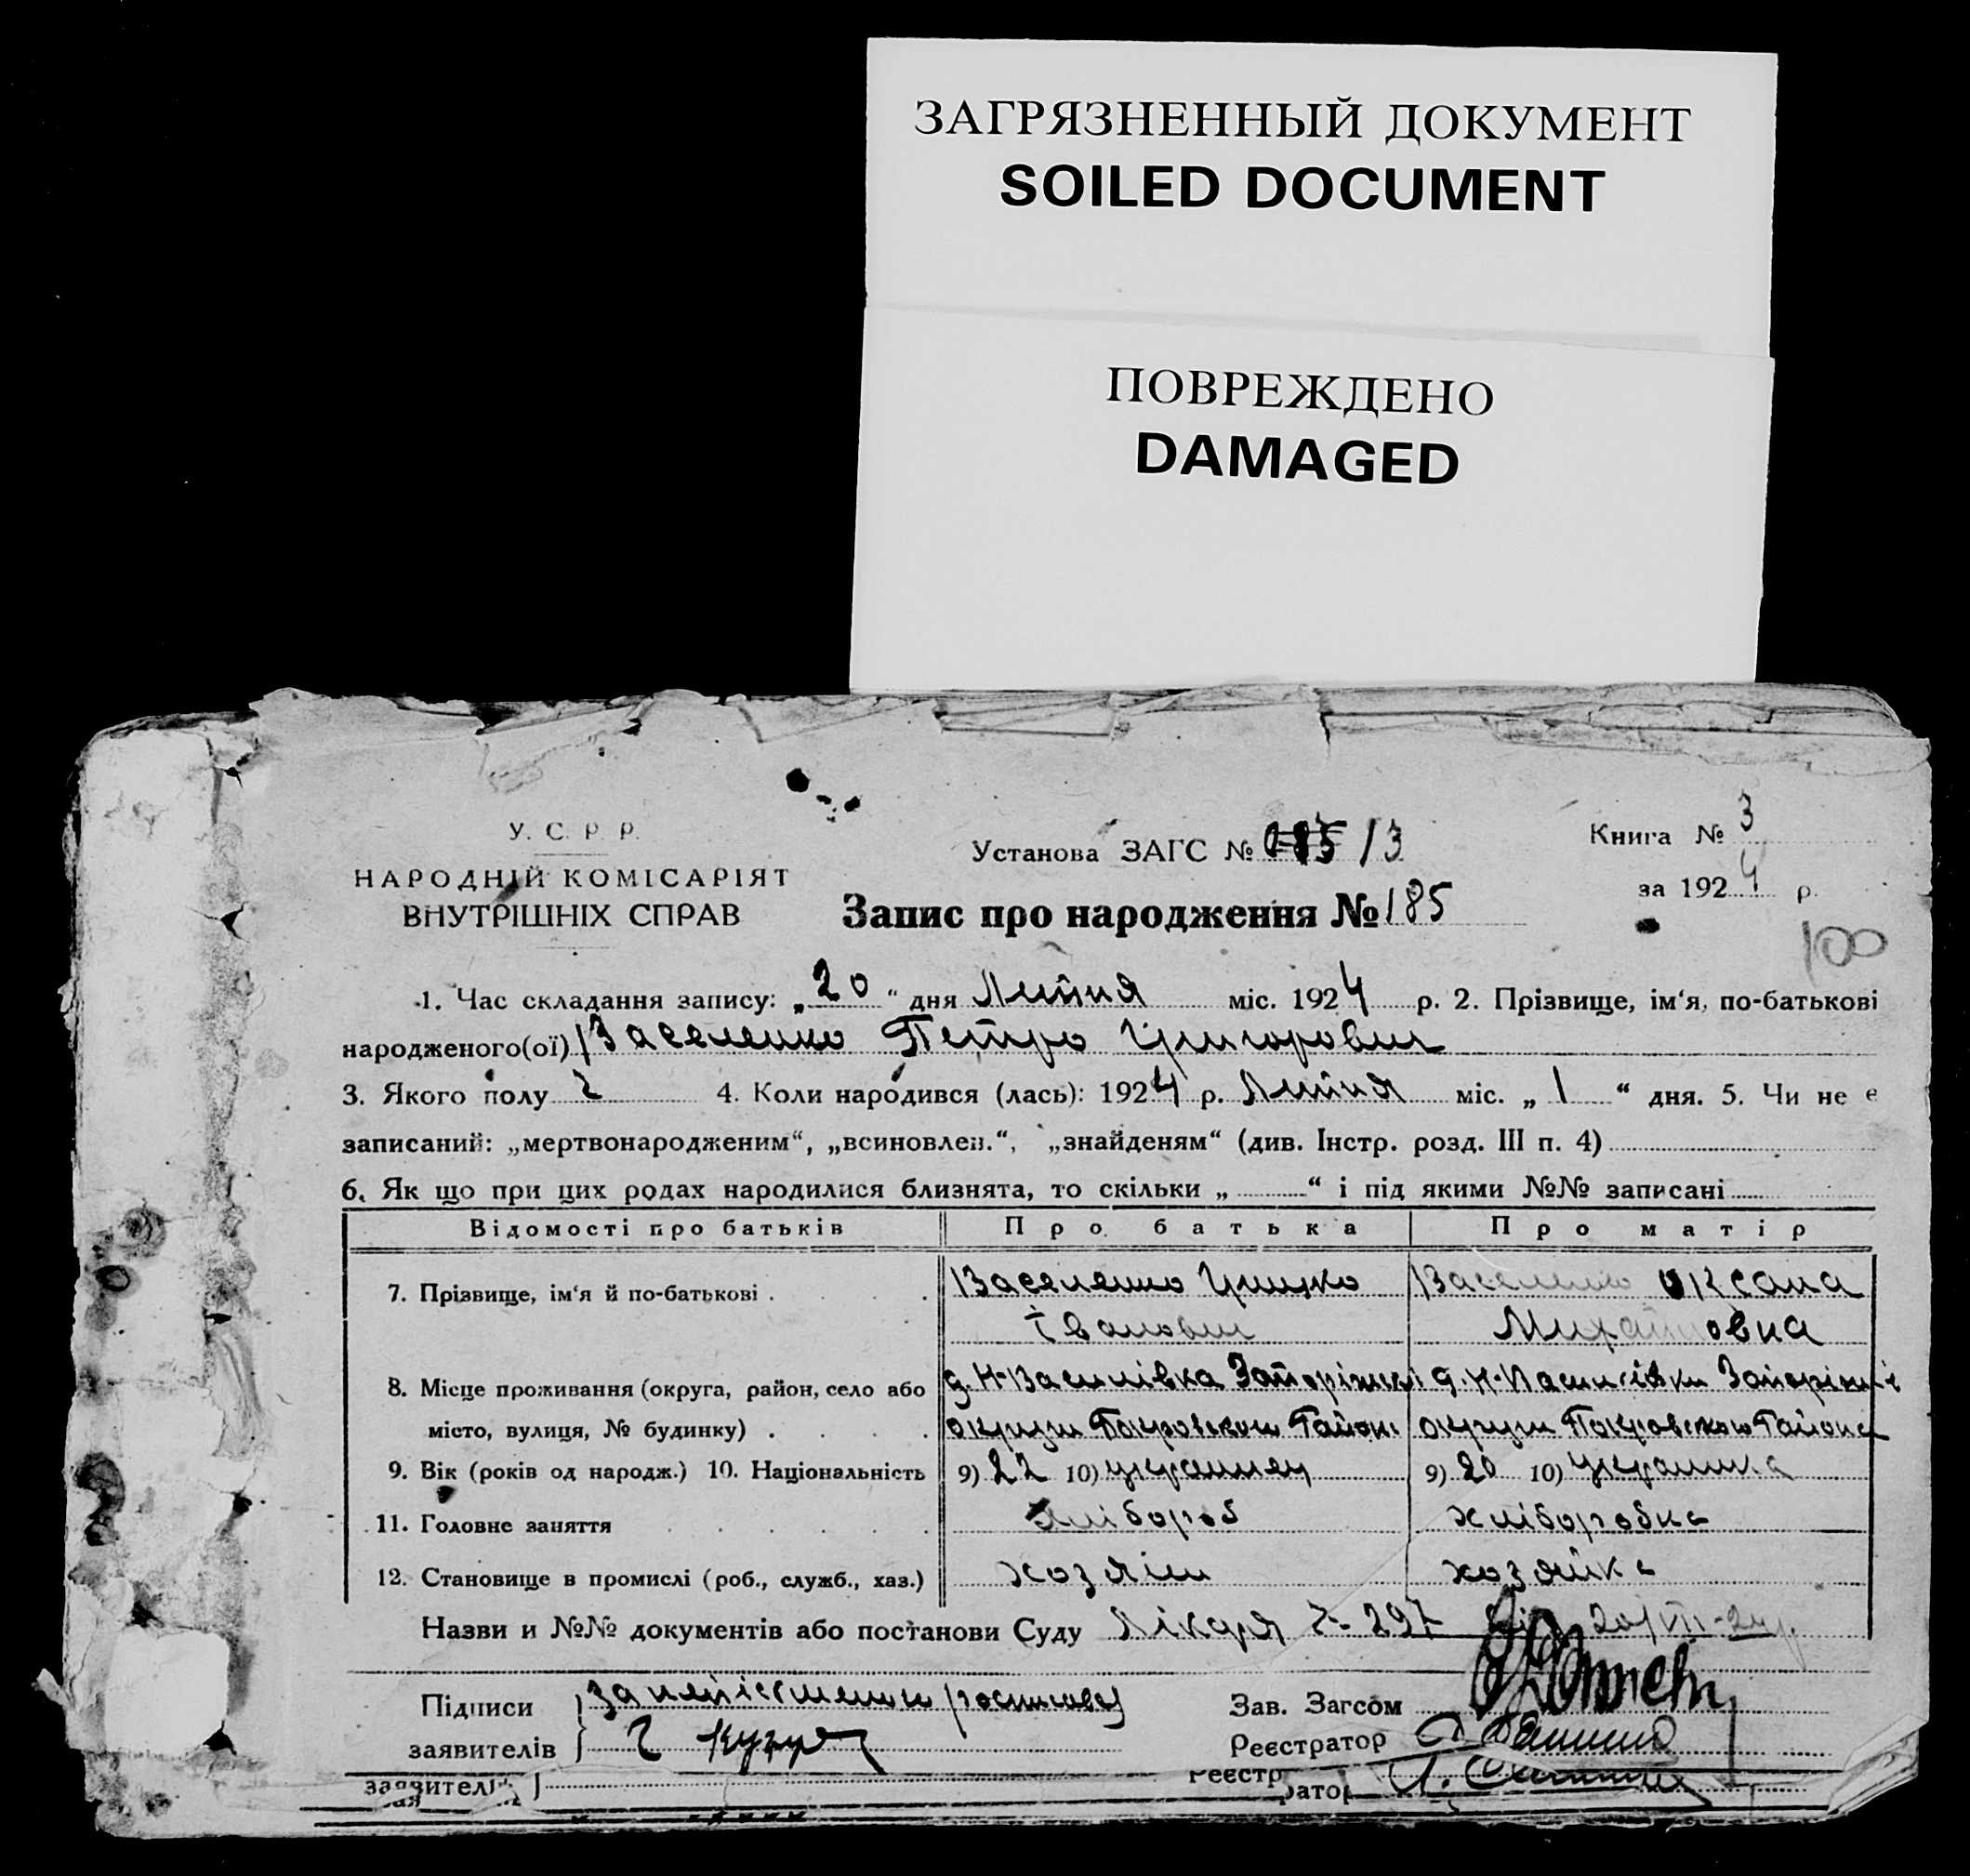 ЗАГРЯЗНЕННЫЙ ДОКУМЕНТ
SOILED DOCUMENT
ПОВРЕЖДЕНО
DAMAGED
У. С. Р. Р.
НАРОДНІЙ КОМІСАРІЯТ
ВНУТРІШНІХ СПРАВ
Установа ЗАГС № 185 13
Книга № 3
за 1924 р.
Запис про народження № 185
100
1. Час складання запису: „20“ дня Липня міс. 1924 р. 2. Прізвище, ім‘я, по-батькові
народженого(ої) Василенко Петро Григорович
3. Якого полу ч 4. Коли народився (лась): 1924 р. Липня міс. „1“ дня. 5. Чи не є
записаний: „мертвонародженим“, „всиновлен.“, „знайденям“ (див. Інстр. розд. III п. 4)
6. Як що при цих родах народилися близнята, то скільки „ “ і під якими №№ записані
Відомості про батьків Про батька Про матір
7. Прізвище, ім‘я й по-батькові . Василенко Грицко Василенко Оксана
Іванович Михайловна
8. Місце проживання (округа, район, село або д. Н-Василівка Запоріжскі д. Н-Василівки Запоріжскі
місто, вулиця, № будинку) . округи Покровського Району округи Покровського Района
9. Вік (років од народж.) 10. Національність 9) 22 10) українец 9) 20 10) українка
11. Головне заняття хлібороб хліборобка
12. Становище в промислі (роб., служб., хаз.) хозяін хозяйка
Назви и №№ документів або постанови Суду Лікаря № 297 від 20/VII-24 р.
Підписи За неписьменного росписався Зав. Загсом
заявителів Реєстратор
заявителів Реєстр
ратор